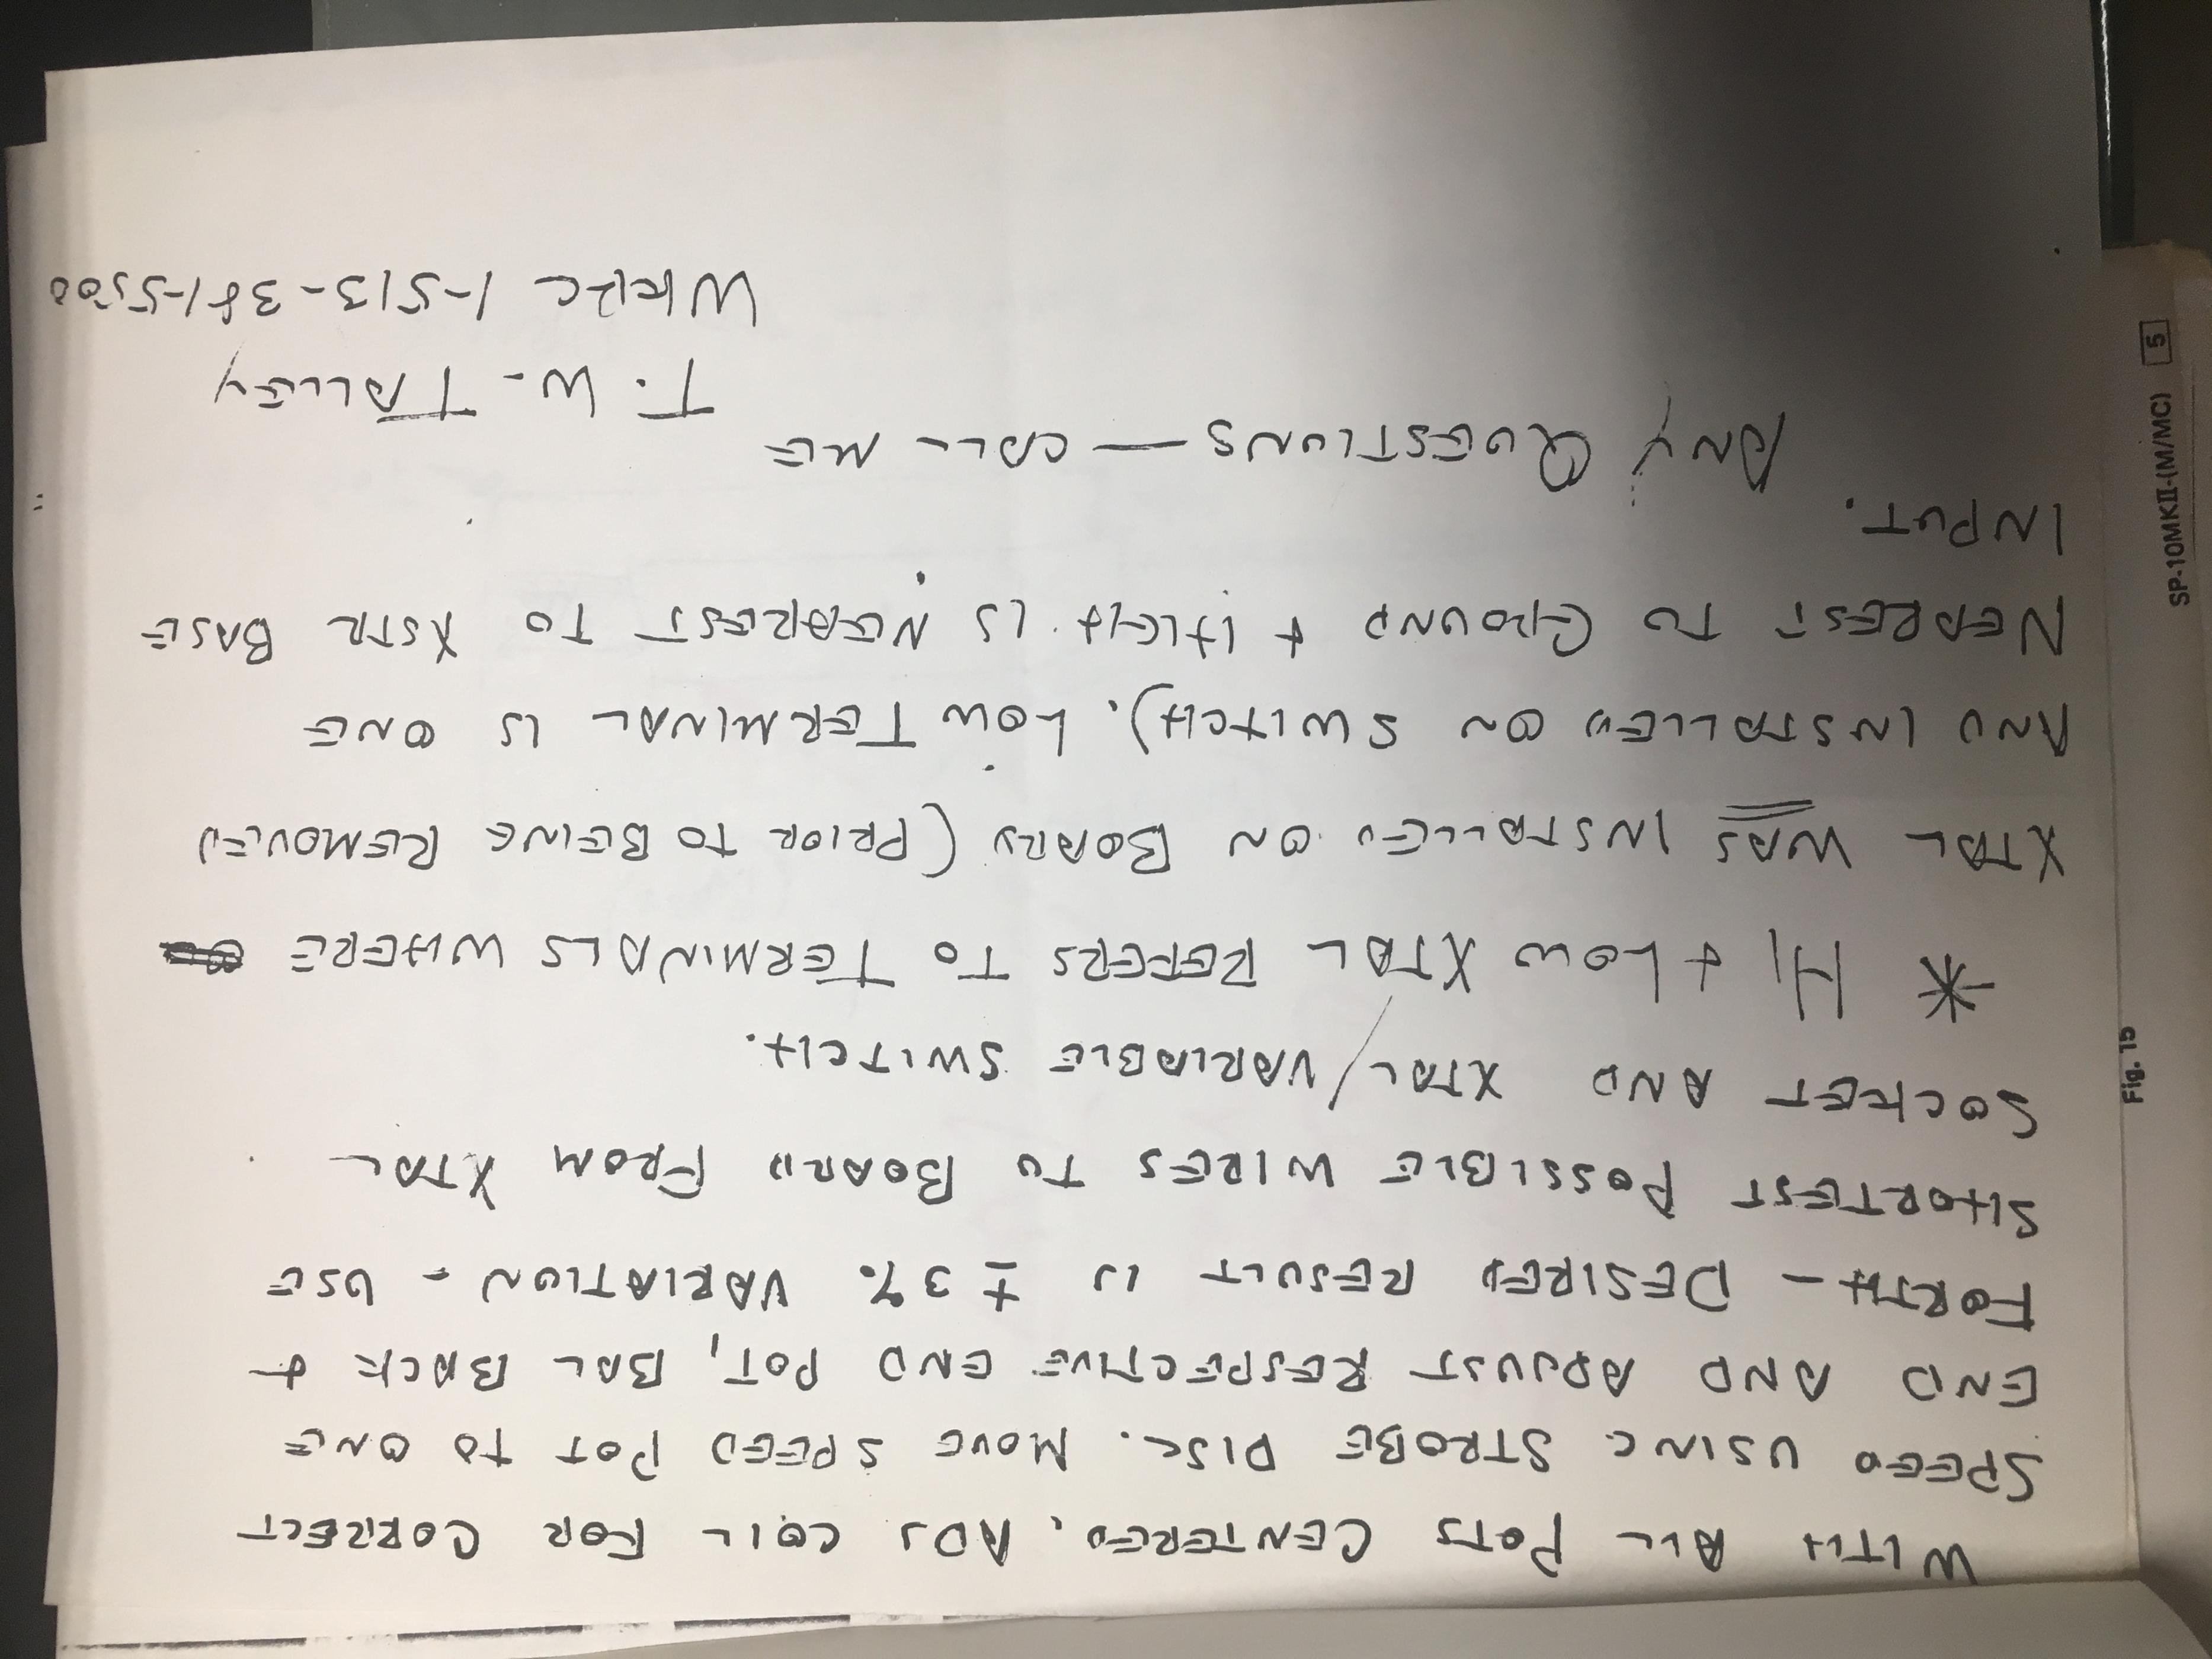 WITH ALL POTS CENTERED, ADJ COIL FOR CORRECT
SPEED USING STROBE DISC. MOVE SPEED POT TO ONE
END AND ADJUST RESPECTIVE END POT, BAL BACK +
FORTH - DESIRED RESULT IS ± 3% VARIATION - USE
SHORTEST POSSIBLE WIRES TO BOARD FROM XTAL
SOCKET AND XTAL/VARIABLE SWITCH.
* HI + LOW XTAL REFERS TO TERMINALS WHERE
XTAL WAS INSTALLED ON BOARD (PRIOR TO BEING REMOVED
AND INSTALLED ON SWITCH). LOW TERMINAL IS ONE
NEAREST TO GROUND + HIGH IS NEAREST TO XSTR BASE
INPUT.
ANY QUESTIONS — CALL ME
T. W. TALLEY
WKRC 1-513-381-5500
Fig. 15
SP-10MKII-(M/MC) 5